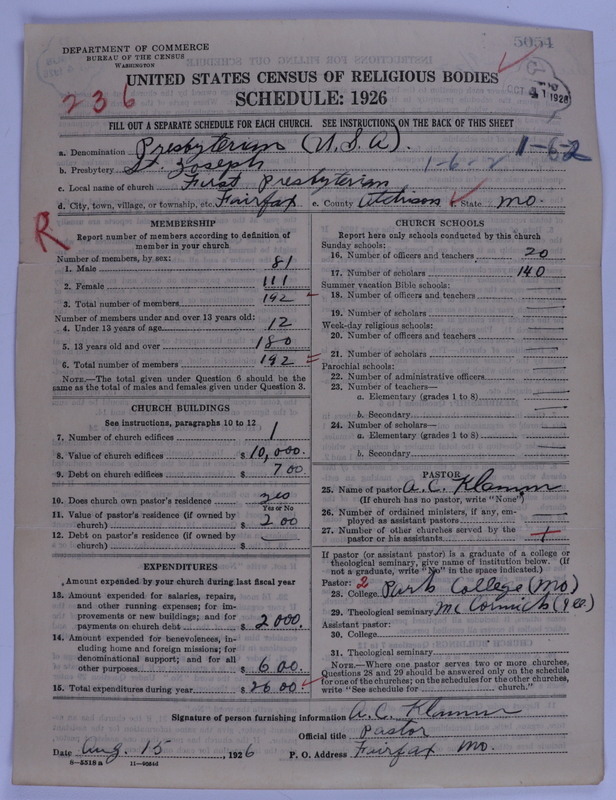 DEPARTMENT OF COMMERCE
BUREAU OF THE CENSUS
WASHINGTON
5054
UNITED STATES CENSUS OF RELIGIOUS BODIES
SCHEDULE: 1926
236
OCT 1 1926
FILL OUT A SEPARATE SCHEDULE FOR EACH CHURCH. SEE INSTRUCTIONS ON THE BACK OF THIS SHEET
a. Denomination Presbyterian (U.S.A). 1-6-2
b. Presbytery St. Joseph 1-6-2
c. Local name of church First Presbyterian
d. City, town, village, or township, etc. Fairfax e. County Atchison State Mo.
R
MEMBERSHIP
Report number of members according to definition of member in your church
Number of members, by sex:
1. Male 81
2. Female 111
3. Total number of members 192
Number of members under and over 13 years old:
4. Under 13 years of age 12
5. 13 years old and over 180
6. Total number of members 192
NOTE.—The total given under Question 6 should be the
same as the total of males and females given under Question 3.
CHURCH BUILDINGS
See instructions, paragraphs 10 to 12
7. Number of church edifices 1
8. Value of church edifices $ 10,000.
9. Debt on church edifices $ 700
10. Does church own pastor's residence yes
Yes or No
11. Value of pastor's residence (if owned by
church) $ 200
12. Debt on pastor's residence (if owned by
church) $ —
EXPENDITURES
Amount expended by your church during last fiscal year
13. Amount expended for salaries, repairs,
and other running expenses; for im-
provements or new buildings; and for
payments on church debt $ 2000.
14. Amount expended for benevolences, in-
cluding home and foreign missions; for
denominational support; and for all
other purposes $ 600.
15. Total expenditures during year $ 2600.
CHURCH SCHOOLS
Report here only schools conducted by this church
Sunday schools:
16. Number of officers and teachers 20
17. Number of scholars 140
Summer vacation Bible schools:
18. Number of officers and teachers —
19. Number of scholars —
Week-day religious schools:
20. Number of officers and teachers —
21. Number of scholars —
Parochial schools:
22. Number of administrative officers —
23. Number of teachers—
a. Elementary (grades 1 to 8) —
b. Secondary —
24. Number of scholars—
a. Elementary (grades 1 to 8) —
b. Secondary —
PASTOR
25. Name of pastor A. C. Klamm
(If church has no pastor, write "None")
26. Number of ordained ministers, if any, em-
ployed as assistant pastors —
27. Number of other churches served by the
pastor or his assistants 1
If pastor (or assistant pastor) is a graduate of a college or
theological seminary, give name of institution below. (If
not a graduate, write "No" in the space indicated.)
Pastor: 2
28. College Park College (Mo)
29. Theological seminary McCormick (Ill.)
Assistant pastor:
30. College
31. Theological seminary
NOTE.—Where one pastor serves two or more churches,
Questions 28 and 29 should be answered only on the schedule
for one of the churches; on the schedules for the other churches,
write "See schedule for church."
Signature of person furnishing information A. C. Klamm
Official title Pastor
Date Aug. 15, 1926 P. O. Address Fairfax Mo.
8-5518 a